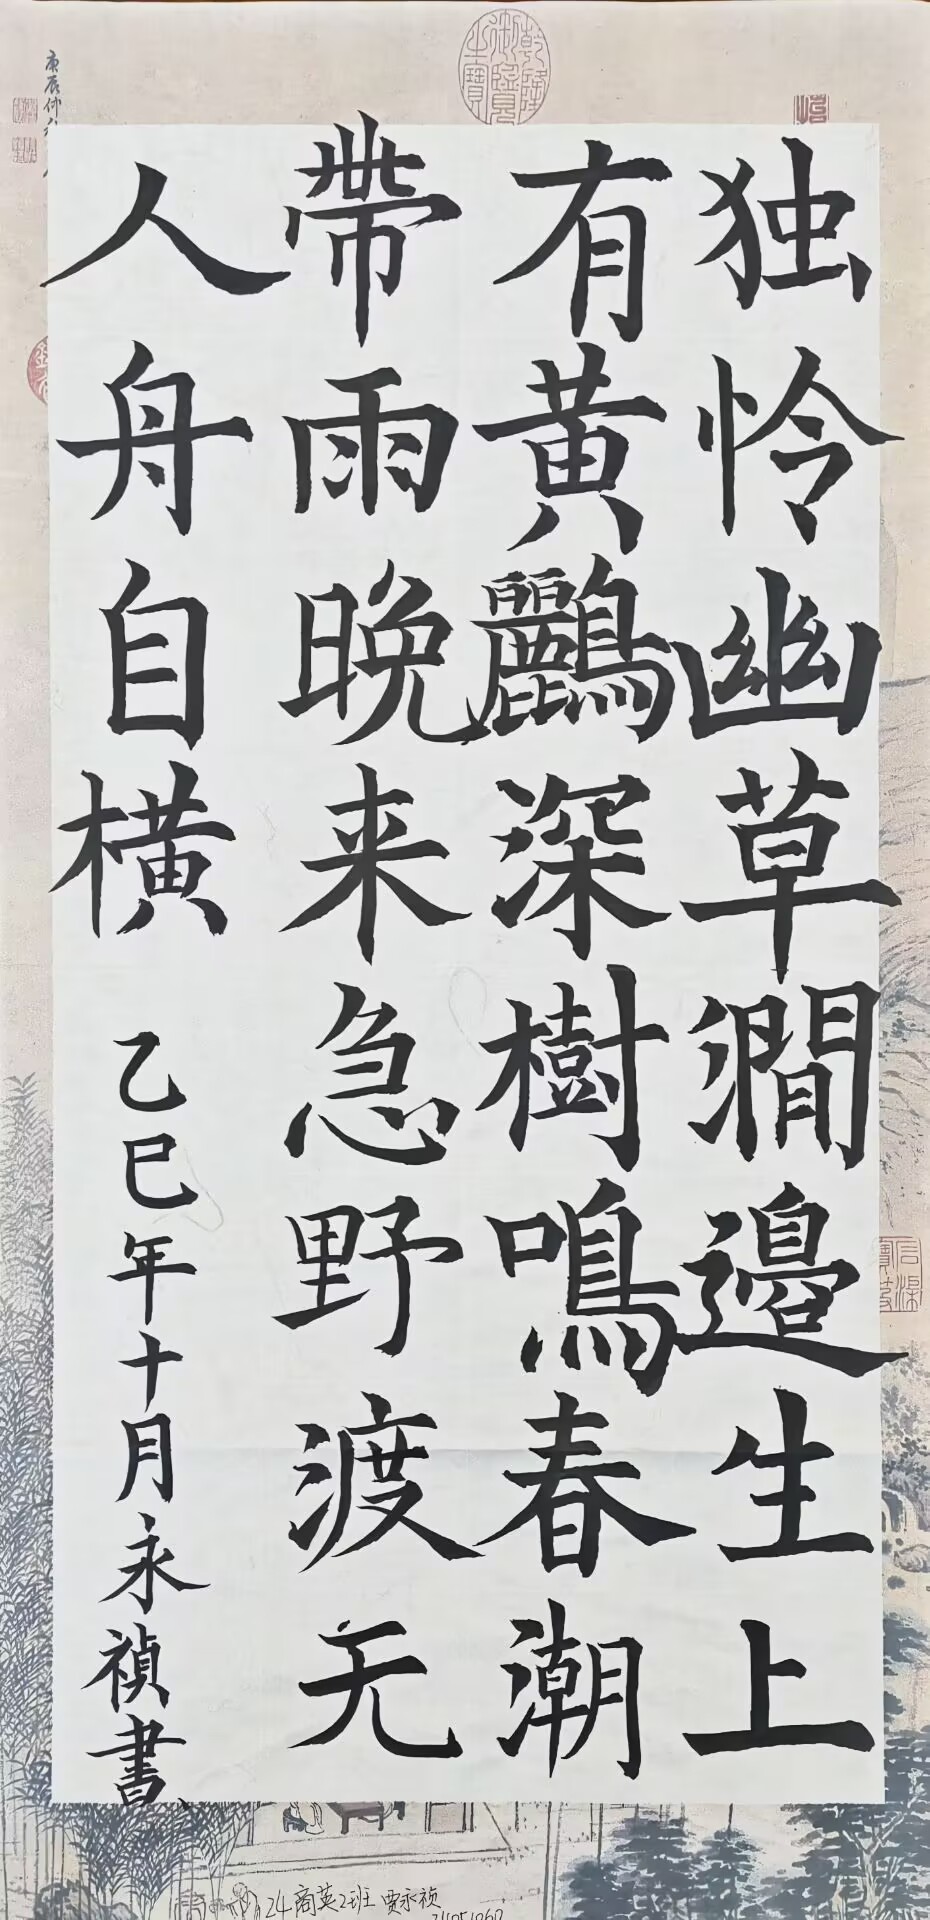 独怜幽草澗邉生上
有黄鸝深樹鳴春潮
帶雨晚来急野渡无
人舟自横
乙巳年十月永禎書
庚辰仲
乾隆御覽之寶
24商英2班 贾永祯